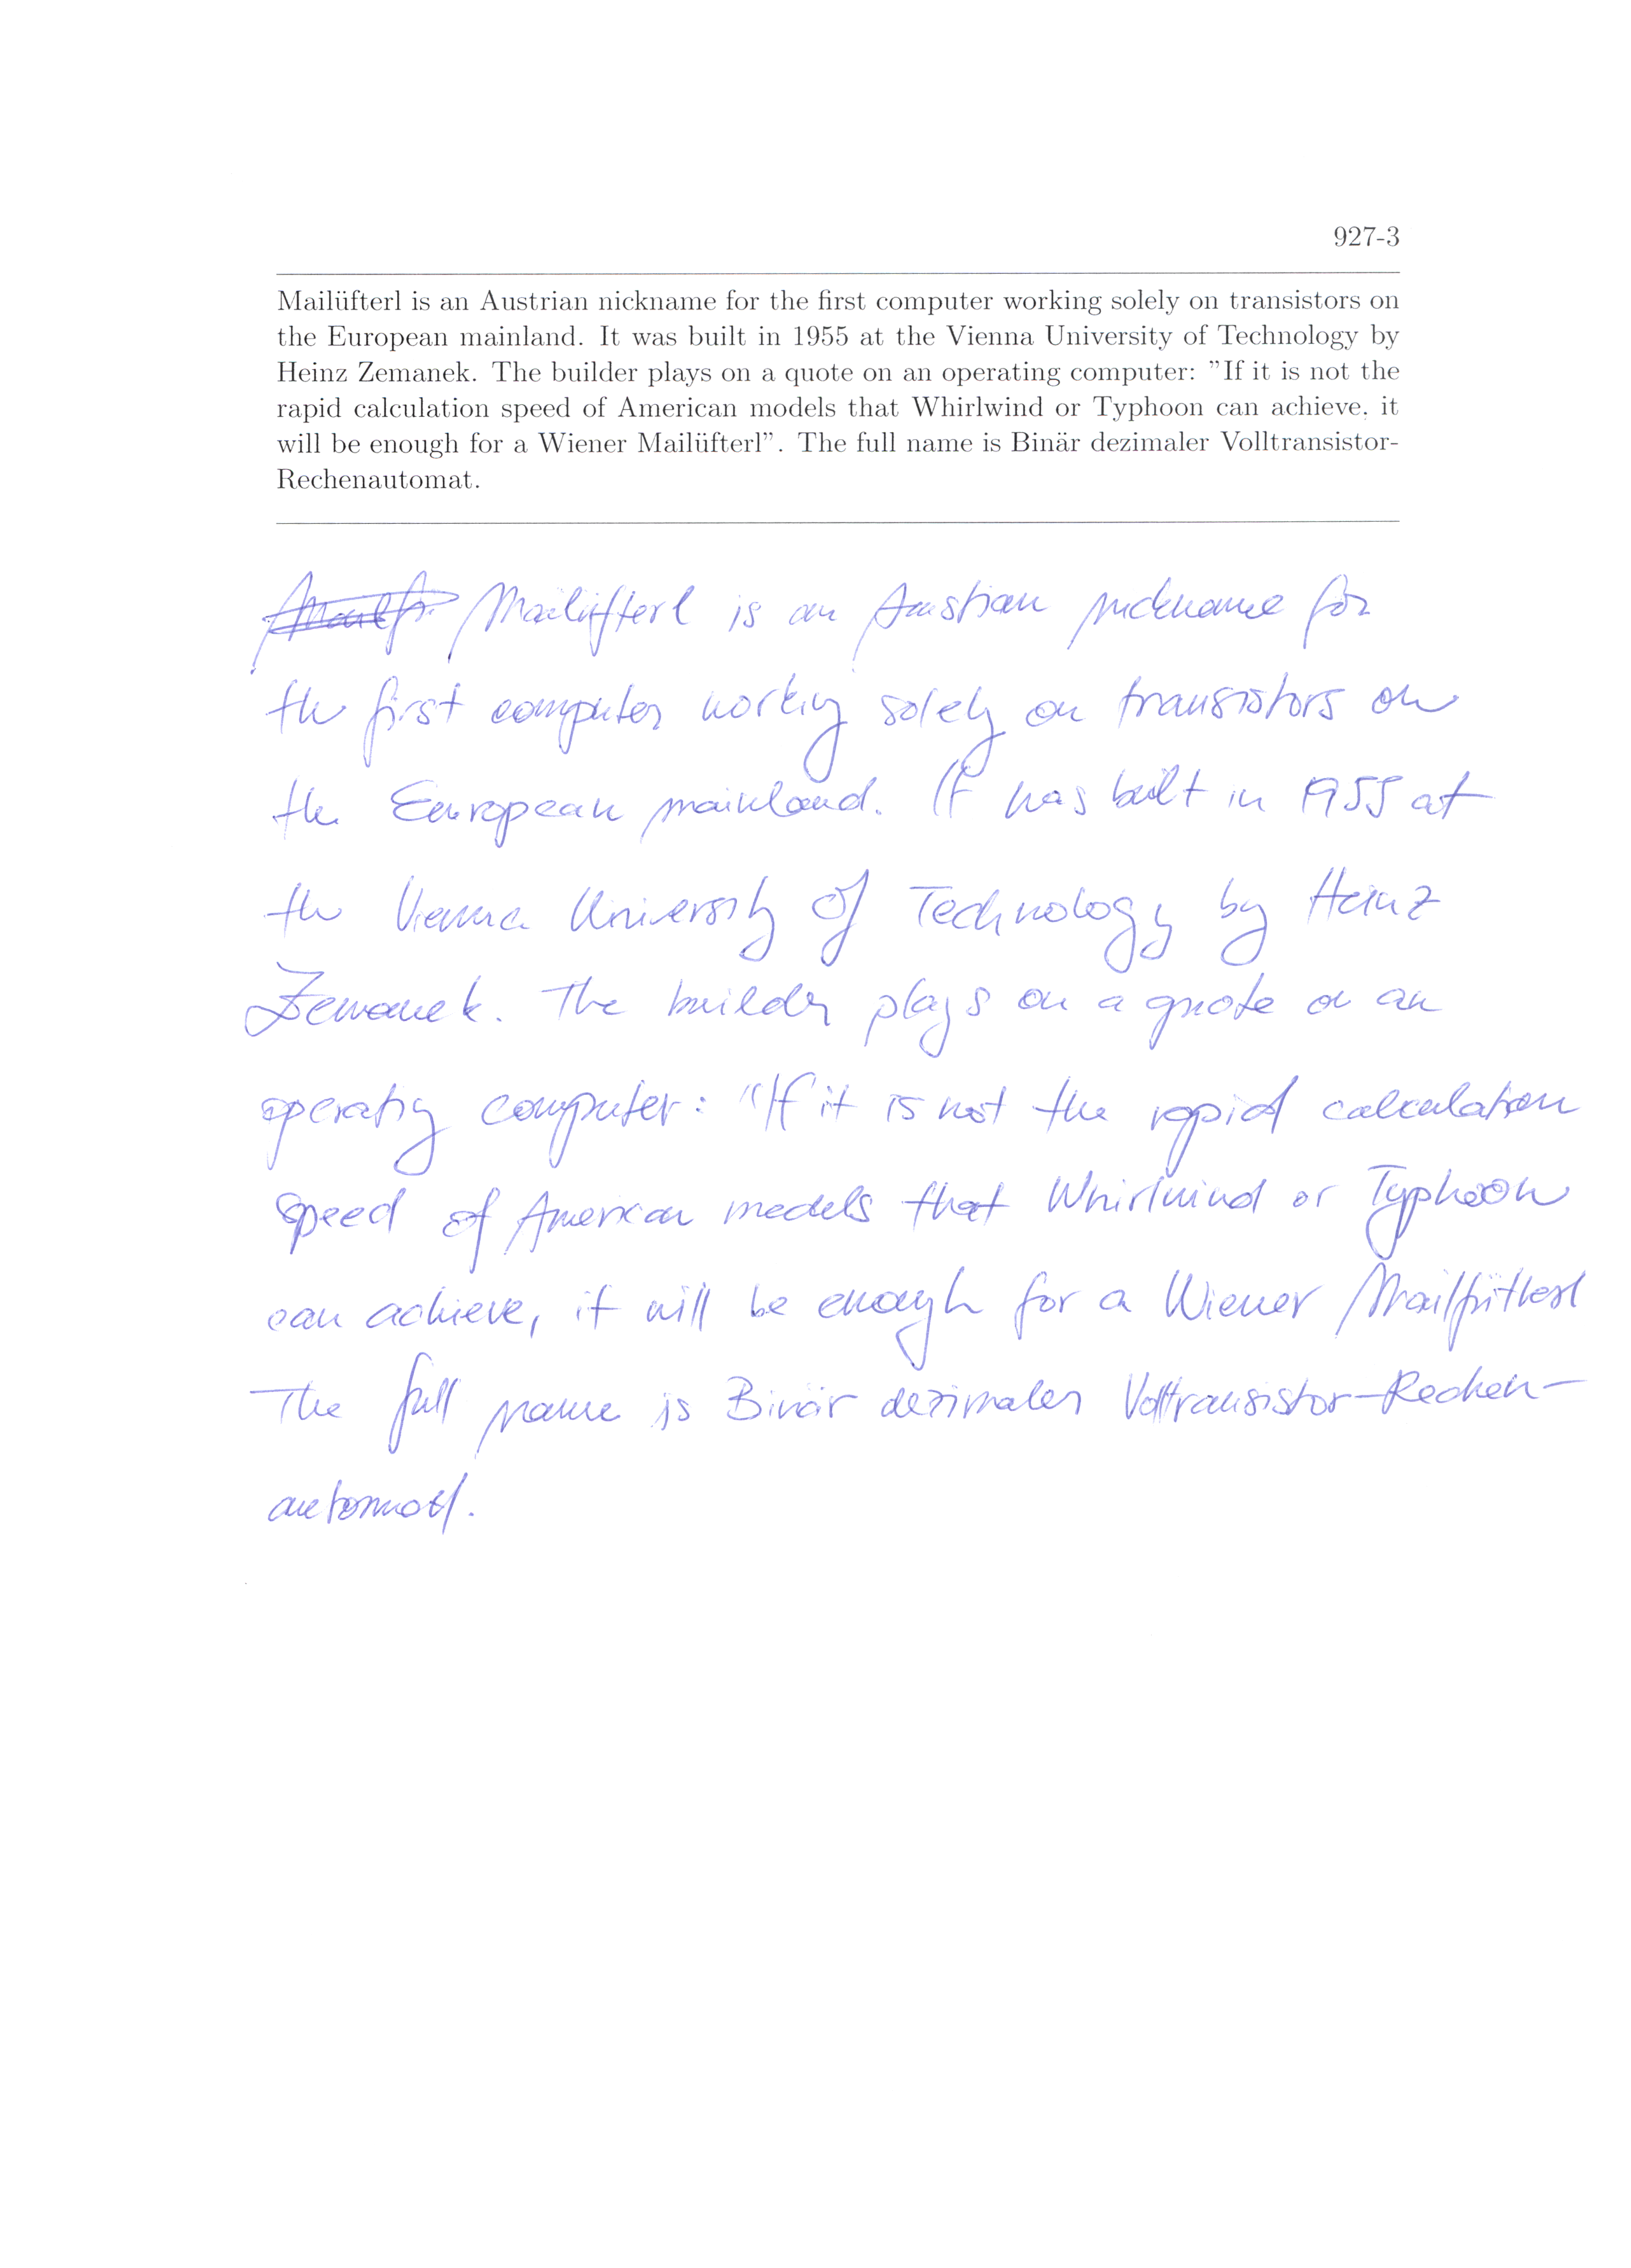 927-3
Mailüfterl is an Austrian nickname for the first computer working solely on transistors on
the European mainland. It was built in 1955 at the Vienna University of Technology by
Heinz Zemanek. The builder plays on a quote on an operating computer: "If it is not the
rapid calculation speed of American models that Whirlwind or Typhoon can achieve, it
will be enough for a Wiener Mailüfterl". The full name is Binär dezimaler Volltransistor-
Rechenautomat.
Mailüfterl is an Austrian nickname for
the first computer working solely on transistors on
the European mainland. It was built in 1955 at
the Vienna University of Technology by Heinz
Zemanek. The builder plays on a quote on an
operating computer: "If it is not the rapid calculation
speed of American models that Whirlwind or Typhoon
can achieve, it will be enough for a Wiener Mailfüterl
The full name is Binär dezimaler Volltransistor-Rechen-
automat.